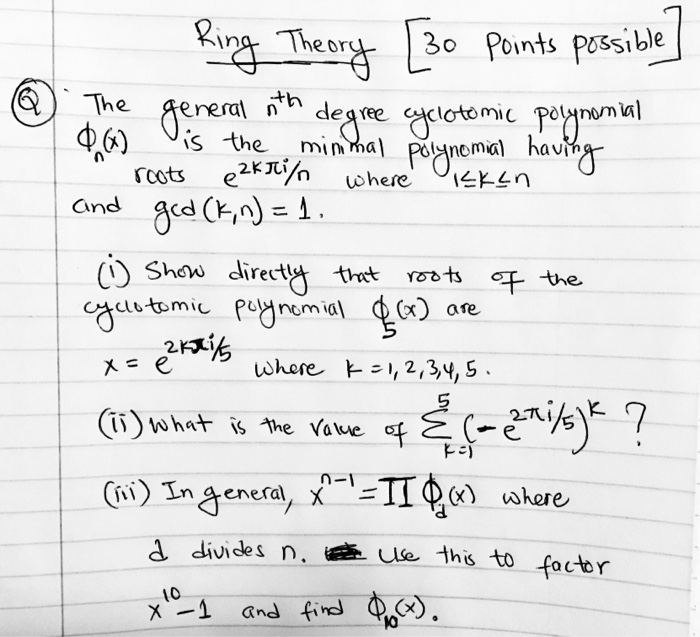 Ring Theory [30 Points possible]
Q The general nth degree cyclotomic polynomial
ϕₙ(x) is the minimal polynomial having
roots e^{2kπi/n} where 1≤k≤n
and gcd(k,n) = 1.
(i) Show directly that roots of the
cyclotomic polynomial ϕ₅(x) are
x = e^{2kπi/5} where k = 1, 2, 3, 4, 5.
(ii) What is the value of \sum_{k=1}^{5} (-e^{2πi/5})^k ?
(iii) In general, x^{n-1} = Π ϕ_d(x) where
d divides n. Use this to factor
x^{10} - 1 and find ϕ₁₀(x).